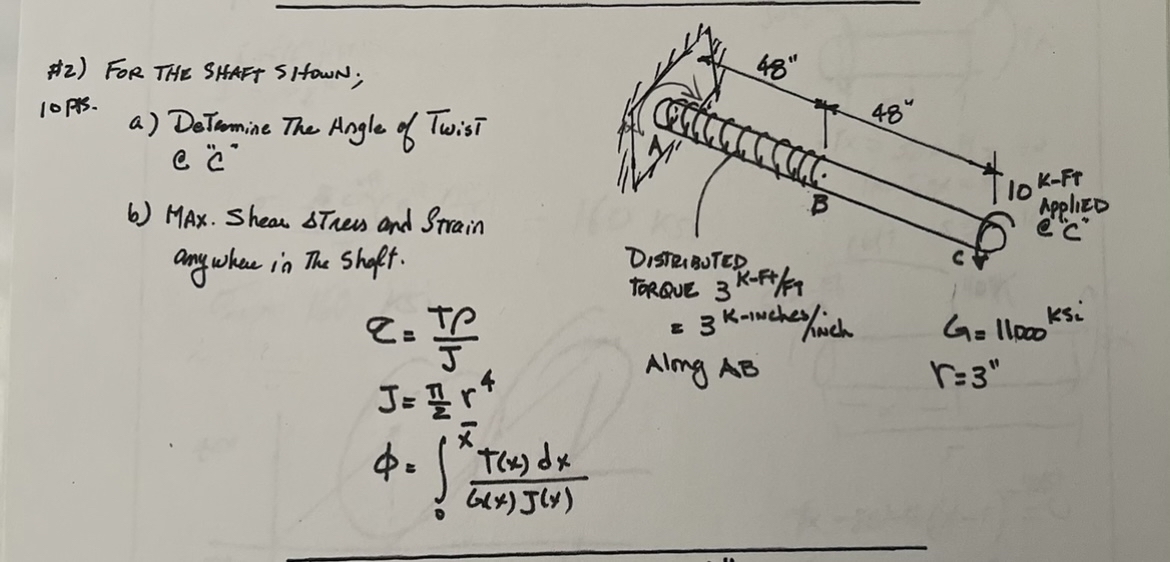 #2) FOR THE SHAFT SHOWN;
10 pts.
a) Determine The Angle of Twist
@ "C"
b) MAX. Shear STress and Strain
anywhere in The Shaft.
τ = Tρ/J
J = π/2 r⁴
ϕ = ∫₀^x̄ T(x) dx / G(x) J(x)
48"
48"
A
B
C
10 K-FT
APPLIED
@ "C"
DISTRIBUTED
TORQUE 3 K-Ft/FT
= 3 K-inches/inch
Along AB
G = 11,000 ksi
r = 3"